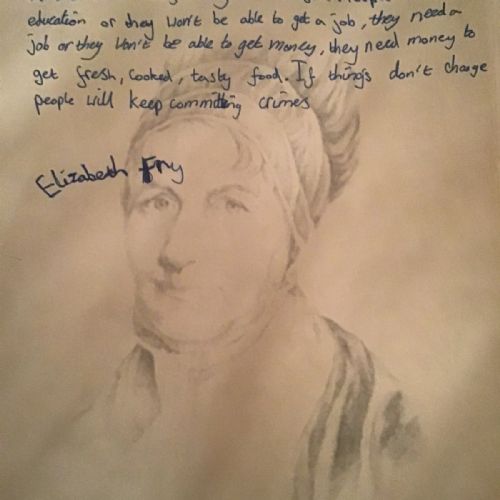 education or they won't be able to get a job, they need a
job or they won't be able to get money, they need money to
get fresh, cooked, tasty food. If things don't change
people will keep committing crimes
Elizabeth Fry